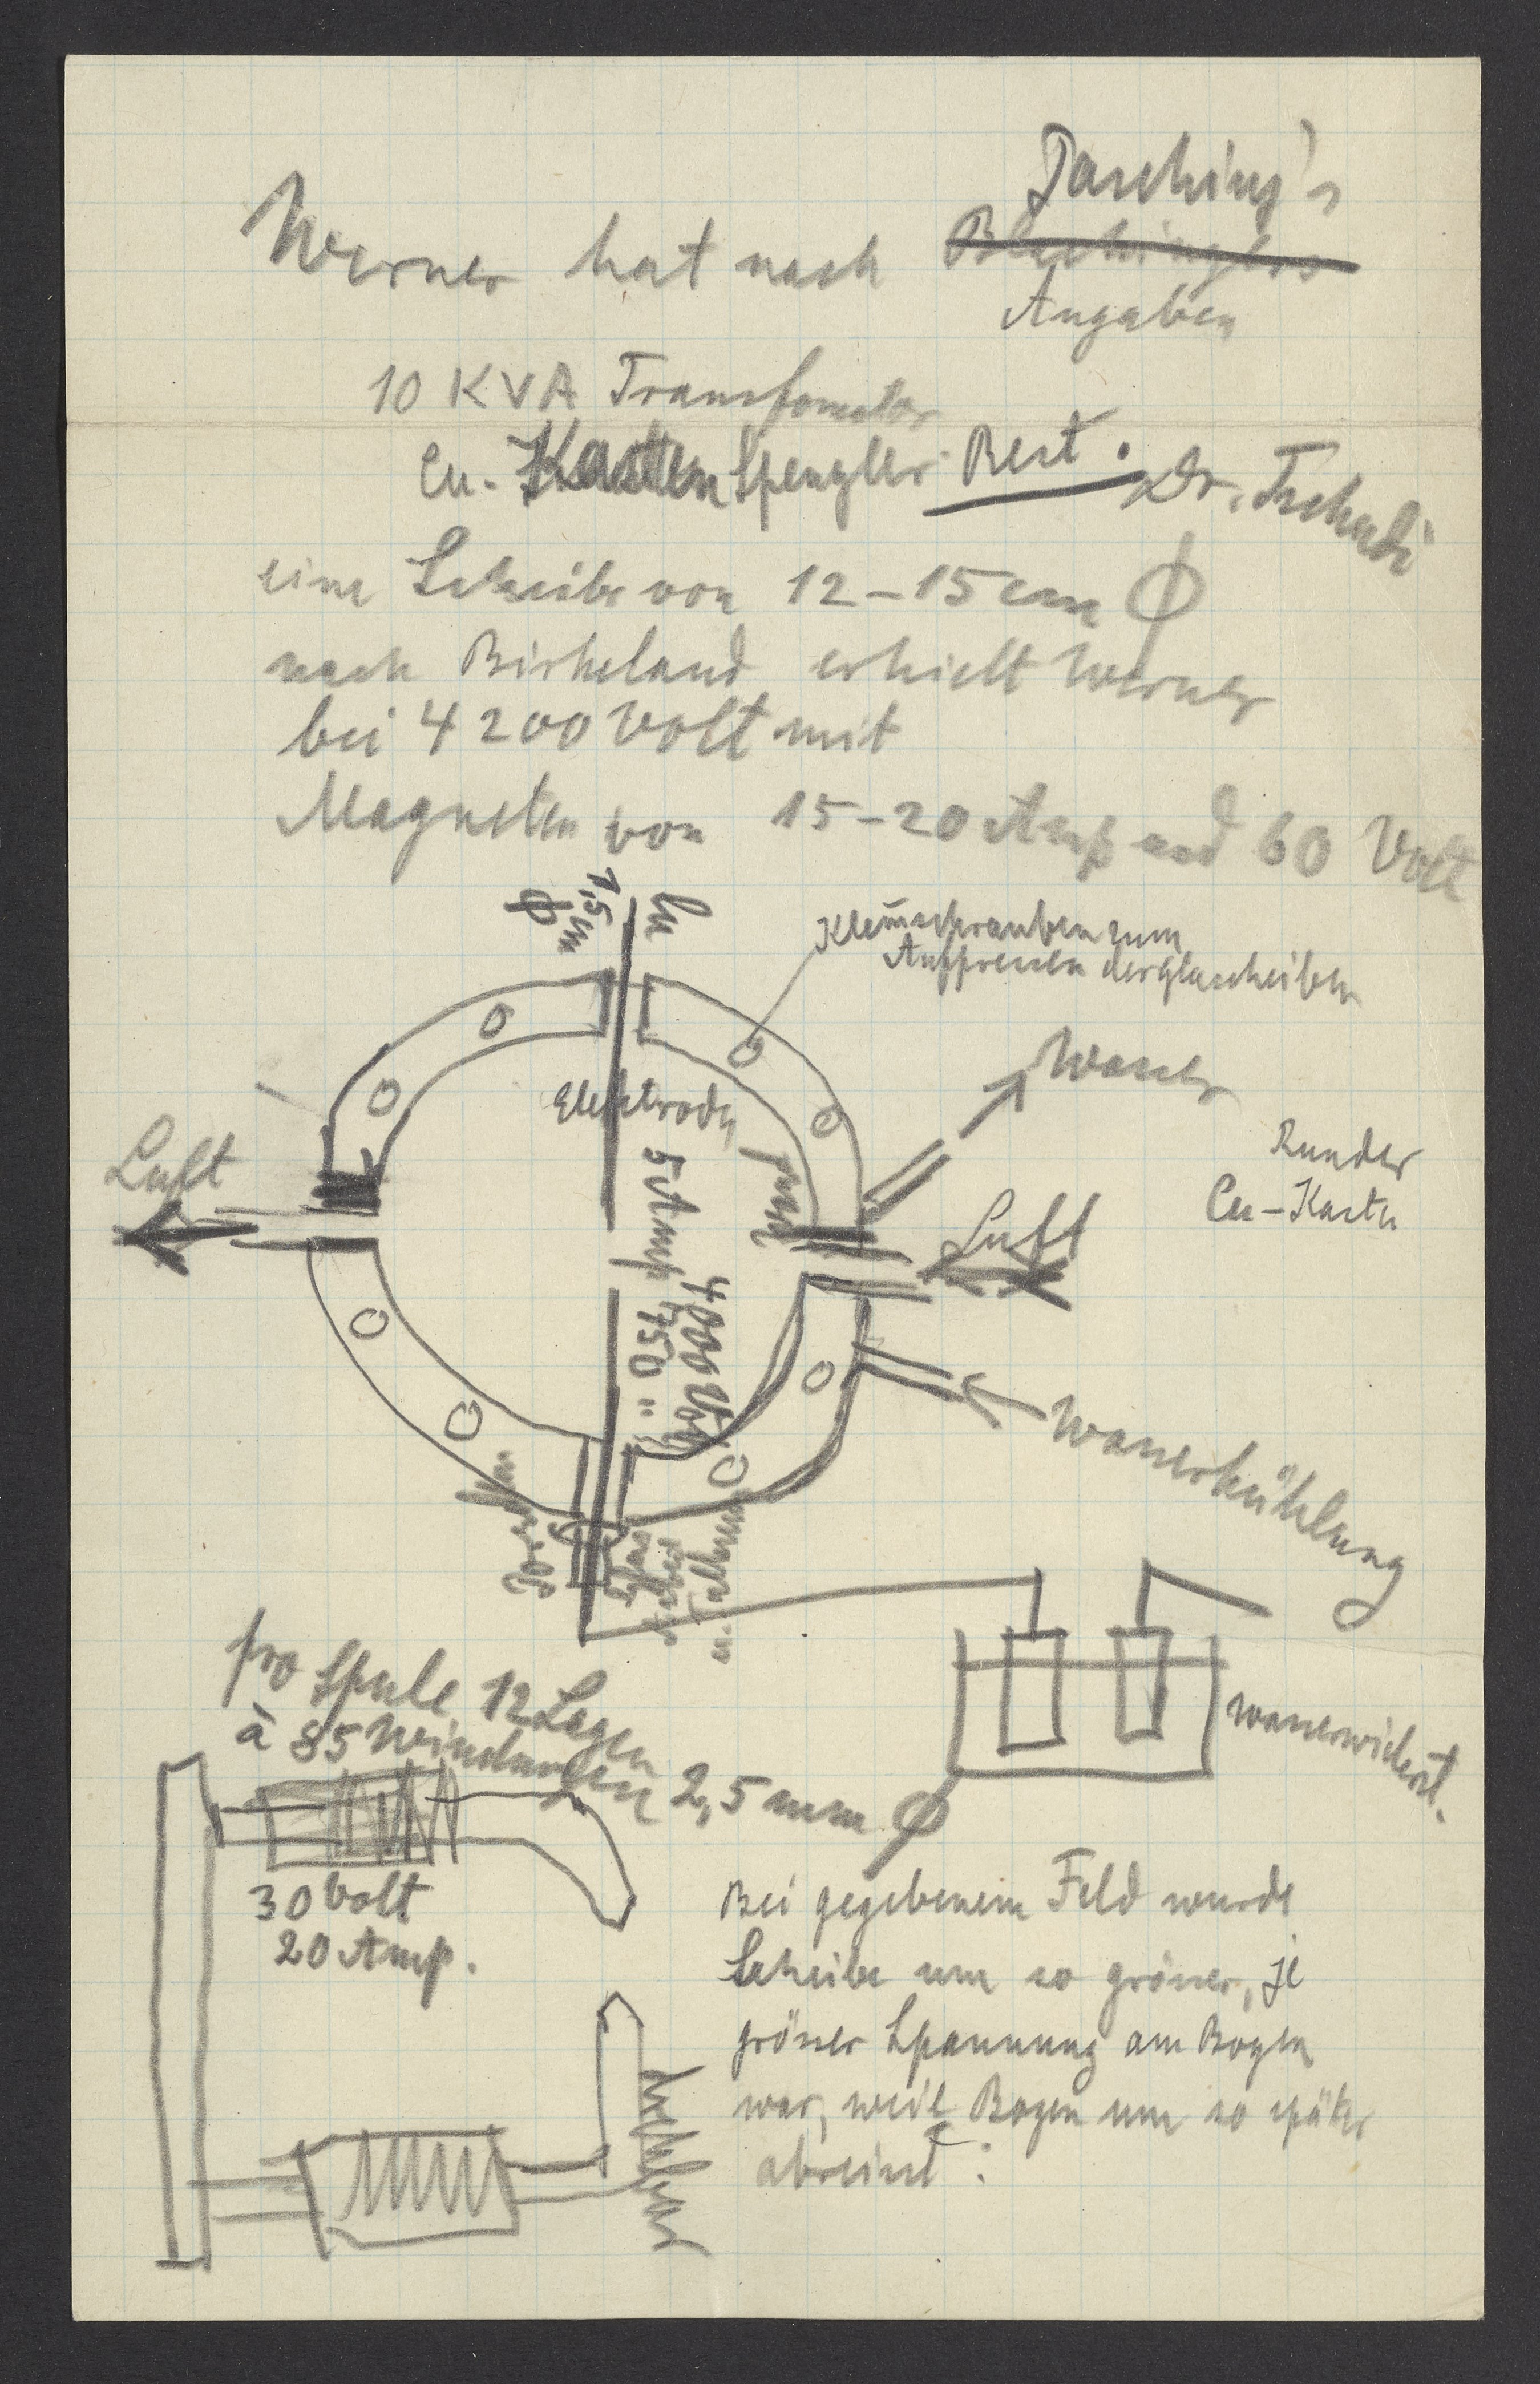 Werner hat nach
Angaben
10 KVA Transfomator
Cu-Kasten Spengler Rest. Dr. Tschudi
eine Scheibe von 12-15 cm Ø
nach Birkeland erhielt Werner
bei 4200 Volt mit
Magneten von 15-20 Amp und 60 Volt
Cu
1,5 cm
Ø
Klemschrauben zum
Aufpressen der Glascheiben
Wasser
Elektrode
Luft
Runder
Cu-Kasten
Luft
5 Amp 4000 Volt
4750 "
Wasserkühlung
Glas
u.
pro Spule 12 Lagen
à 85 Windungen 2,5 mm Ø
wasserwiderst.
30 Volt
20 Amp.
Bei gegebenem Feld wurde
Scheibe um so grösser, je
grösser Spannung am Bogen
war, weil Bogen um so später
abreisst.